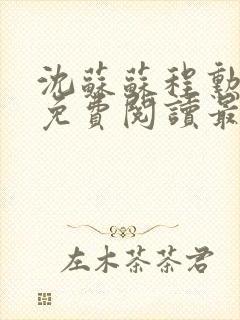 沈蘇蘇程勳
免費閱讀最
左木茶茶君